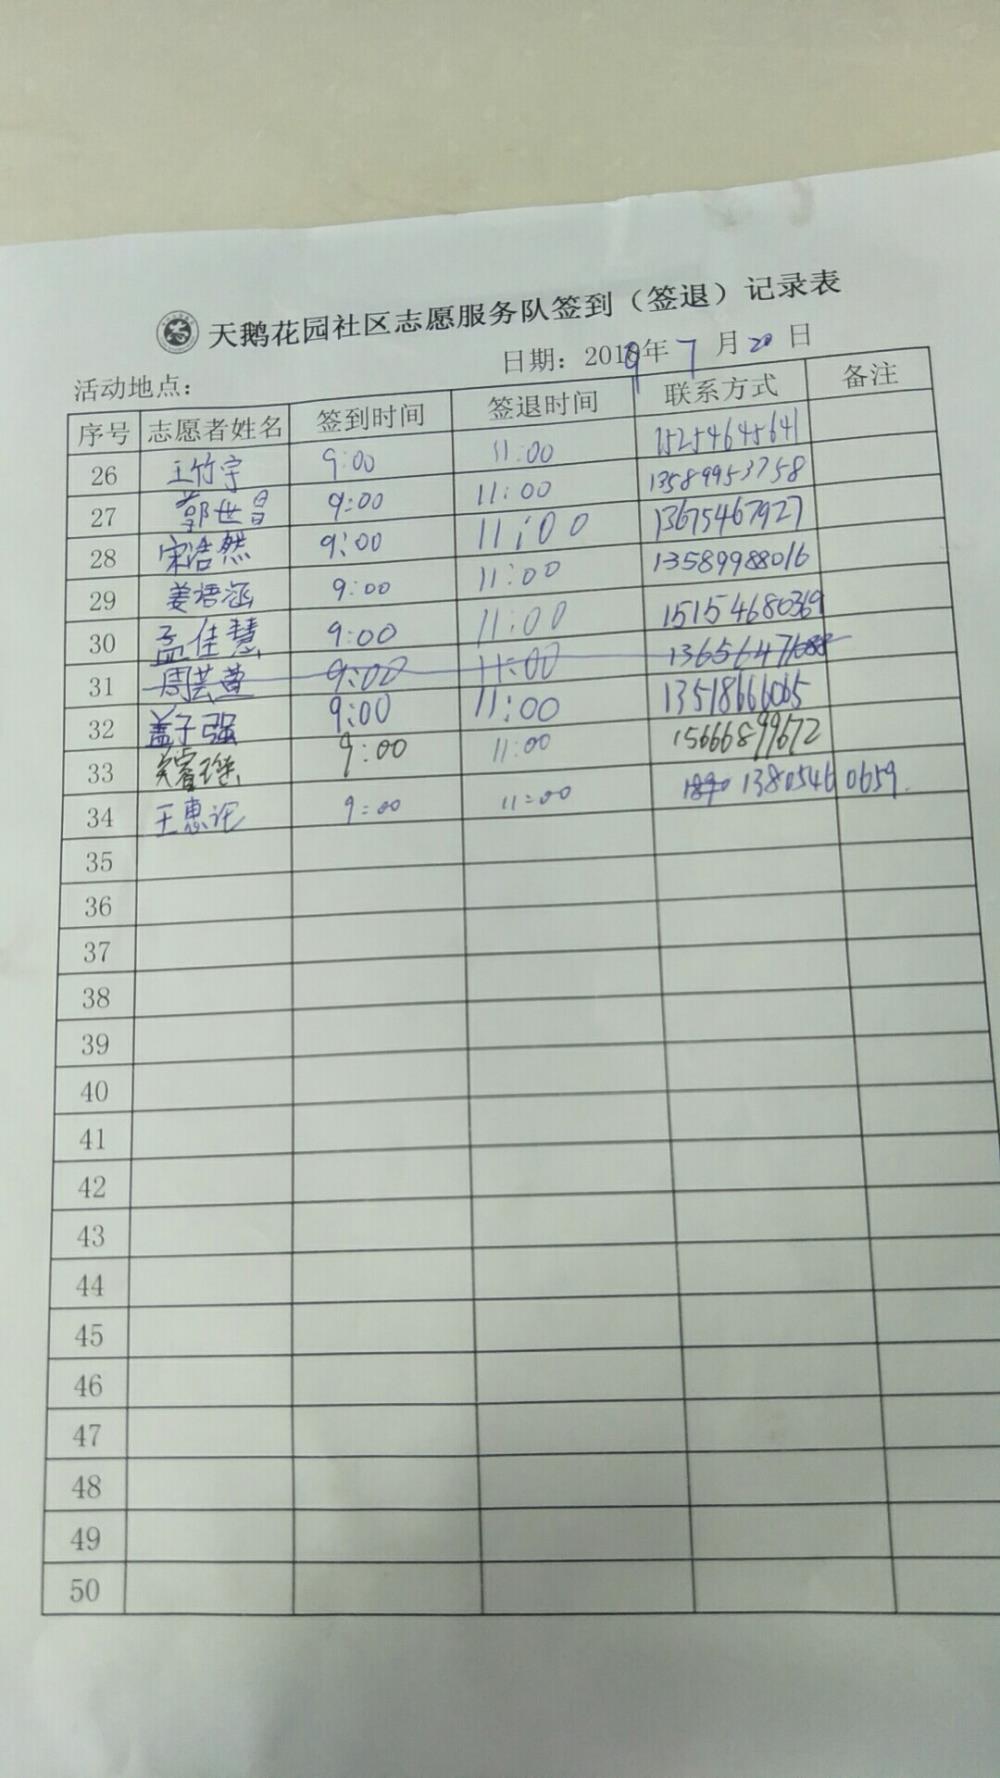 天鹅花园社区志愿服务队签到（签退）记录表
日期：2019年 7 月 20 日
活动地点：
序号 志愿者姓名 签到时间 签退时间 联系方式 备注
26 王竹宇 9:00 11:00 15254645641
27 郭世昌 9:00 11:00 13589953758
28 宋浩然 9:00 11:00 13675467927
29 姜语涵 9:00 11:00 13589988016
30 孟佳慧 9:00 11:00 15154680369
31 周芸萱 9:00 11:00
32 盖子强 9:00 11:00 13518666065
33 9:00 11:00 15666899672
34 王惠 9:00 11:00 13805460659
35
36
37
38
39
40
41
42
43
44
45
46
47
48
49
50